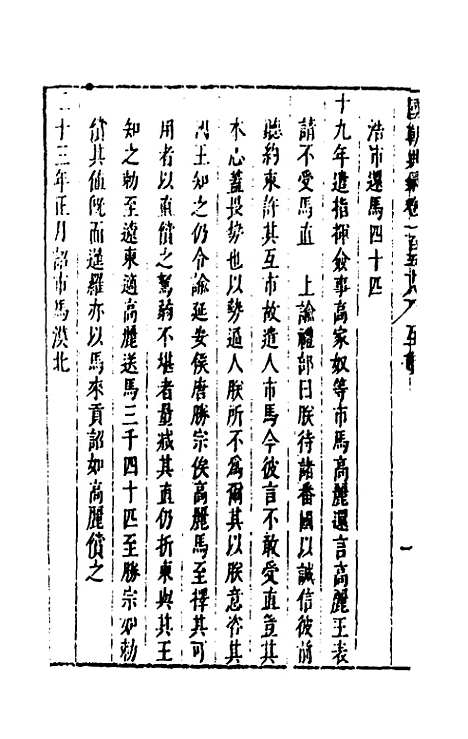 國朝典彙卷一百五十八 互市 一
浩市還馬四十匹
十九年遣指揮僉事高家奴等市馬高麗還言高麗王表
請不受馬直 上諭禮部曰朕待諸番國以誠信彼前
聽約束許其互市故遣人市馬今彼言不敢受直豈其
本心蓋畏勢也以勢逼人朕所不為爾其以朕意咨其
國王知之仍令諭延安侯唐勝宗俟高麗馬至擇其可
用者以直償之駑弱不堪者量減其直仍折柬與其王
知之勅至遼東適高麗送馬三千四十匹至勝宗如勅
償其值既而暹羅亦以馬來貢詔如高麗償之
二十三年正月詔市馬漠北